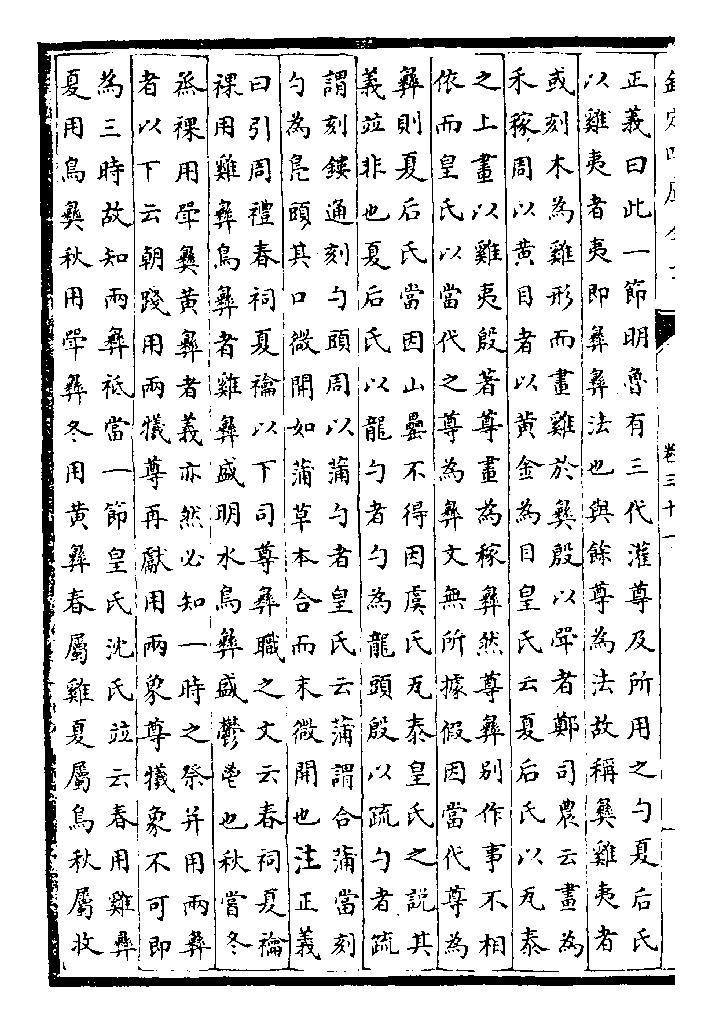 欽定四庫全書
卷三十一
正義曰此一節明魯有三代灌尊及所用之勺夏后氏
以雞夷者夷即彝彝法也與餘尊為法故稱彝雞夷者
或刻木為雞形而畫雞於彝殷以斝者鄭司農云畫為
禾稼周以黃目者以黃金為目皇氏云夏后氏以瓦泰
之上畫以雞夷殷著尊畫為稼彝然尊彝別作事不相
依而皇氏以當代之尊為彝文無所據假因當代尊為
彝則夏后氏當因山罍不得因虞氏瓦泰皇氏之說其
義並非也夏后氏以龍勺者勺為龍頭殷以疏勺者疏
謂刻鏤通刻勺頭周以蒲勺者皇氏云蒲謂合蒲當刻
勺為鳧頭其口微開如蒲草本合而末微開也注正義
曰引周禮春祠夏禴以下司尊彝職之文云春祠夏禴
祼用雞彝鳥彝者雞彝盛明水鳥彝盛鬱鬯也秋嘗冬
烝祼用斝彝黃彝者義亦然必知一時之祭并用兩彝
者以下云朝踐用兩犧尊再獻用兩象尊犧象不可即
為三時故知兩彝祗當一節皇氏沈氏並云春用雞彝
夏用鳥彝秋用斝彝冬用黃彝春屬雞夏屬鳥秋屬收